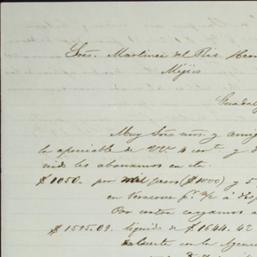 Sres. Martinez del Rio Herm
Méjico
Guadal
Muy Sres. nros. y amigos
la apreciable de VV 4 corrte. y
nido les abonamos en cta.
$1050. por mil pesos ($1000) y 5
en Veracruz
Por contra cargamos a
$1595.09. liquido de $1644.42
en la Agencia